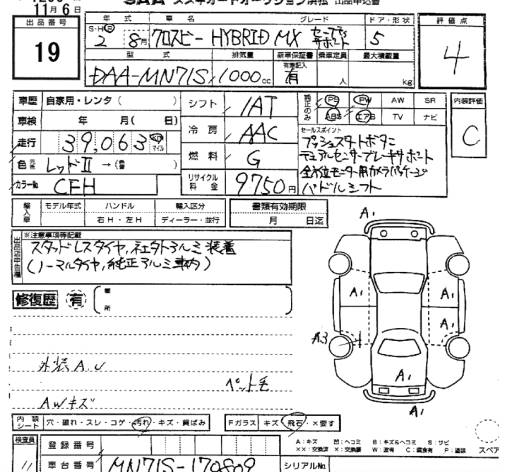 SAA スズキオートオークション浜松 出品申込書
11月6日
出品番号 19
年 式 車 名 グレード ドア・形状 評価点
2 8月 クロスビー HYBRID MX 5 4
型 式 排気量 新車保証書 乗車定員 最大積載量
DAA-MN71S 1000cc 有 人 kg
車歴 自家用・レンタ( ) シフト IAT PS PW AW SR 内装評価
車検 年 月( 日) 冷房 AAC ABS エアB TV ナビ C
走行 39,063 km マイル 燃料 G セールスポイント
プッシュスタートボタン
デュアルセンサーブレーキサポート
全方位モニター用カメラパッケージ
パドルシフト
色 レッドII →(
カラーNo CFH リサイクル料金 9750円
輸入車 モデル年式 ハンドル 輸入区分 書類有効期限
右H・左H ディーラー・並行 月 日迄
※注意事項等記載
スタッドレスタイヤ、社外アルミ装着
(ノーマルタイヤ、純正アルミ車内)
修復歴 有 箇所
A1
A1 A1
A3 A1
A1
外装 A.U
ペット毛
AWキズ
内装シート 穴・破れ・スレ・コゲ・汚れ・キズ・黄ばみ Fガラス キズ 飛石・×要す
A:キズ U:ヘコミ B:キズ&ヘコミ S:サビ
W:有波 C:腐食有 P:塗装 スペア
検査員 登録番号
車台番号 MN71S-170809 シリアルNo.